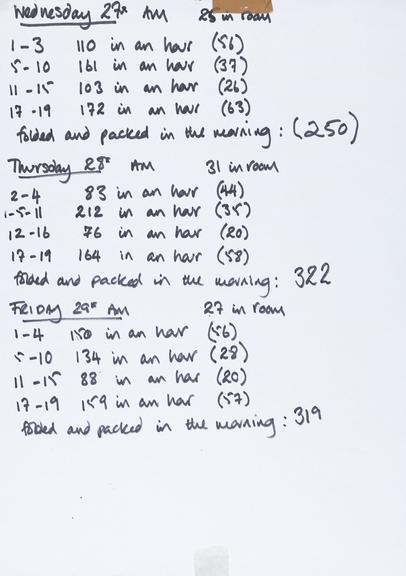 Wednesday 27th AM 28 in room
1-3 110 in an hour (56)
5-10 161 in an hour (37)
11-15 103 in an hour (26)
17-19 172 in an hour (63)
folded and packed in the morning: (250)
Thursday 28th AM 31 in room
2-4 83 in an hour (44)
1-5-11 212 in an hour (35)
12-16 76 in an hour (20)
17-19 164 in an hour (58)
folded and packed in the morning: 322
FRIDAY 29th AM 27 in room
1-4 150 in an hour (56)
5-10 134 in an hour (28)
11-15 88 in an hour (20)
17-19 159 in an hour (57)
folded and packed in the morning: 319